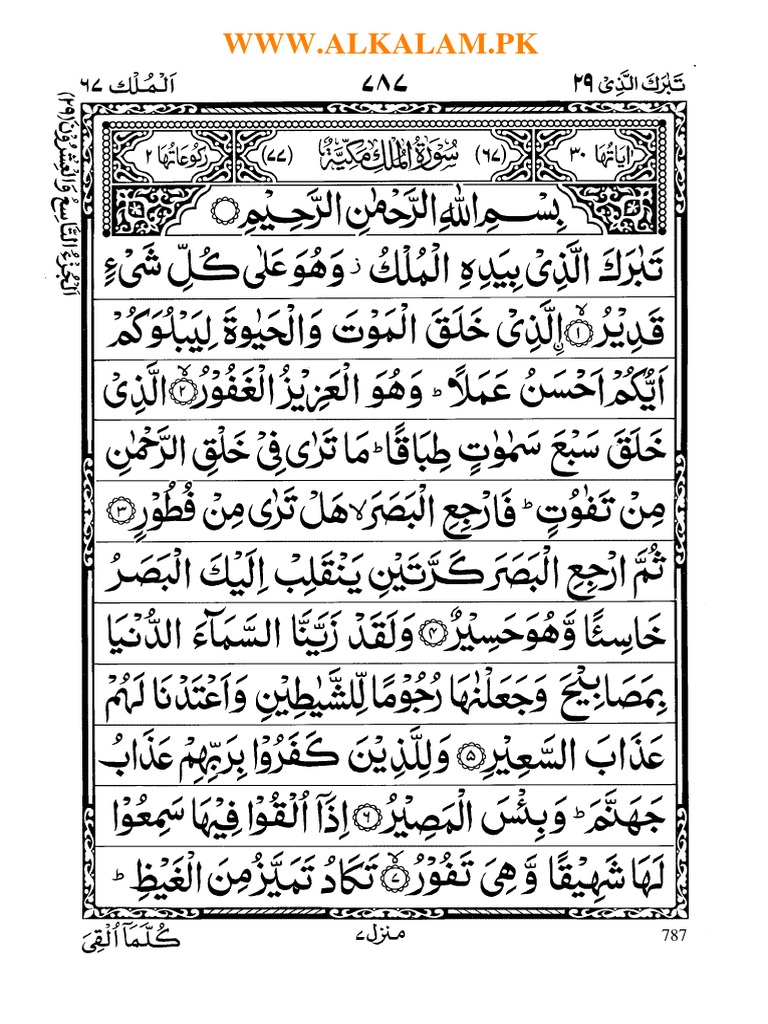 WWW.ALKALAM.PK
تَبٰرَكَ الَّذِیْ ۲۹ ۷۸۷ اَلْمُلْك ۶۷
اٰیَاتُهَا ۳۰ (۶۷) سُوْرَةُ الْمُلْكِ مَكِّیَّةٌ (۷۷) رُكُوْعَاتُهَا ۲
بِسْمِ اللّٰهِ الرَّحْمٰنِ الرَّحِیْمِ ۝
تَبٰرَكَ الَّذِیْ بِیَدِهِ الْمُلْكُ ز وَهُوَ عَلٰی كُلِّ شَیْءٍ
قَدِیْرُ ۙ﴿۱﴾ اِ۟لَّذِیْ خَلَقَ الْمَوْتَ وَالْحَیٰوةَ لِیَبْلُوَكُمْ
اَیُّكُمْ اَحْسَنُ عَمَلًا ؕ وَهُوَ الْعَزِیْزُ الْغَفُوْرُ ۙ﴿۲﴾ الَّذِیْ
خَلَقَ سَبْعَ سَمٰوٰتٍ طِبَاقًا ؕ مَا تَرٰی فِیْ خَلْقِ الرَّحْمٰنِ
مِنْ تَفٰوُتٍ ؕ فَارْجِعِ الْبَصَرَ ۙ هَلْ تَرٰی مِنْ فُطُوْرٍ ﴿۳﴾
ثُمَّ ارْجِعِ الْبَصَرَ كَرَّتَیْنِ یَنْقَلِبْ اِلَیْكَ الْبَصَرُ
خَاسِئًا وَّهُوَ حَسِیْرٌ ﴿۴﴾ وَلَقَدْ زَیَّنَّا السَّمَآءَ الدُّنْیَا
بِمَصَابِیْحَ وَجَعَلْنٰهَا رُجُوْمًا لِّلشَّیٰطِیْنِ وَاَعْتَدْنَا لَهُمْ
عَذَابَ السَّعِیْرِ ﴿۵﴾ وَلِلَّذِیْنَ كَفَرُوْا بِرَبِّهِمْ عَذَابُ
جَهَنَّمَ ؕ وَبِئْسَ الْمَصِیْرُ ﴿۶﴾ اِذَاۤ اُلْقُوْا فِیْهَا سَمِعُوْا
لَهَا شَهِیْقًا وَّهِیَ تَفُوْرُ ۙ﴿۷﴾ تَكَادُ تَمَیَّزُ مِنَ الْغَیْظِ ؕ
اَلْجُزْءُ التَّاسِعُ وَالْعِشْرُوْنَ (۲۹)
787 منزل ۷ كُلَّمَاۤ اُلْقِیَ